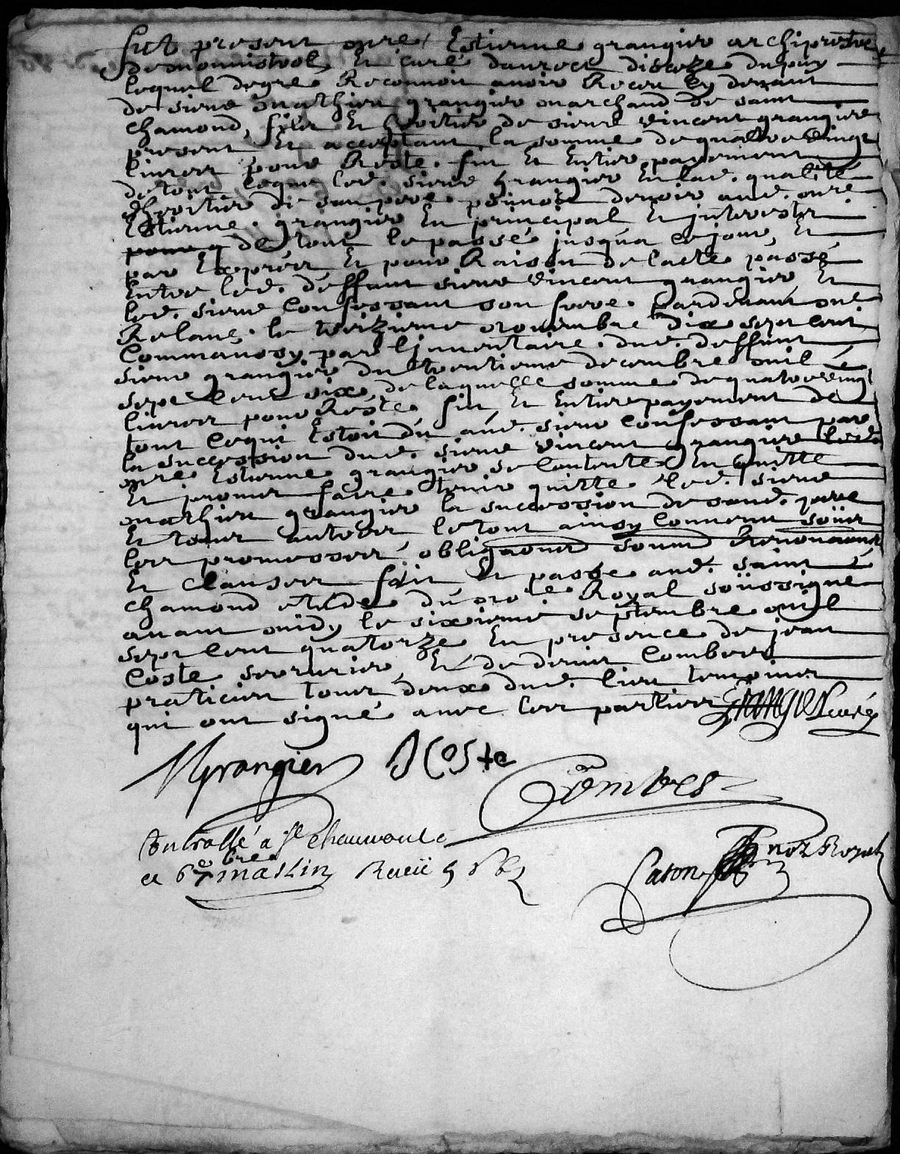 fut present mre Estienne grangier archiprestre
de monnistrol Et curé daurect dioceze du puy
lequel de gre Reconnoit avoir Receu cy devant
de sieur mathieu grangier marchand de saint
chamond, filz Et heritier de sieur vincent grangier
present Et acceptant la somme de quatre vingt
livres pour Reste, fin Et Entier payement
de tout ce que led. sieur grangier En lad. qualité
dheritier de son pere pouvoit devoir aud. mre
Estienne grangier En principal Et interestz
de tout le passé jusqua ce jour, Et
par Exprés Et pour Raison de lacte passé
Entre led. deffunt sieur vincent grangier Et
led. sieur Confessant son frere. pardevant me
le novembre dix sept cent
par linventaire dud. deffunt
sieur grangier du trentieme decembre mil
sept cent six de laquelle somme de quatre vingt
livres pour Reste fin Et Entier payement de
tout ce qui Estoit dû aud. sieur confessant par
la succession dud. sieur vincent grangier led.
mre Estienne grangier se contente En quitte
Et promet faire tenir quitte led. sieur
mathieu grangier la succession de sond. pere
Et tous autres le tout ainsy convenu soubz
les promesses, obligaons soumd Renonciaons
Et clauses fait Et passé aud. saint
chamond Etude du note Royal soussigné
avant midy le sixieme septembre mil
sept cent quatorze En presence de jean
Coste serrurier Et de denis Combes
praticien tous deux dud. lieu temoins
qui ont signé avec les parties Grangier curé
MGrangier JCoste
Combes
Controllé a St Chaumont
ce 6e 7bre Receu
Caron not Royal